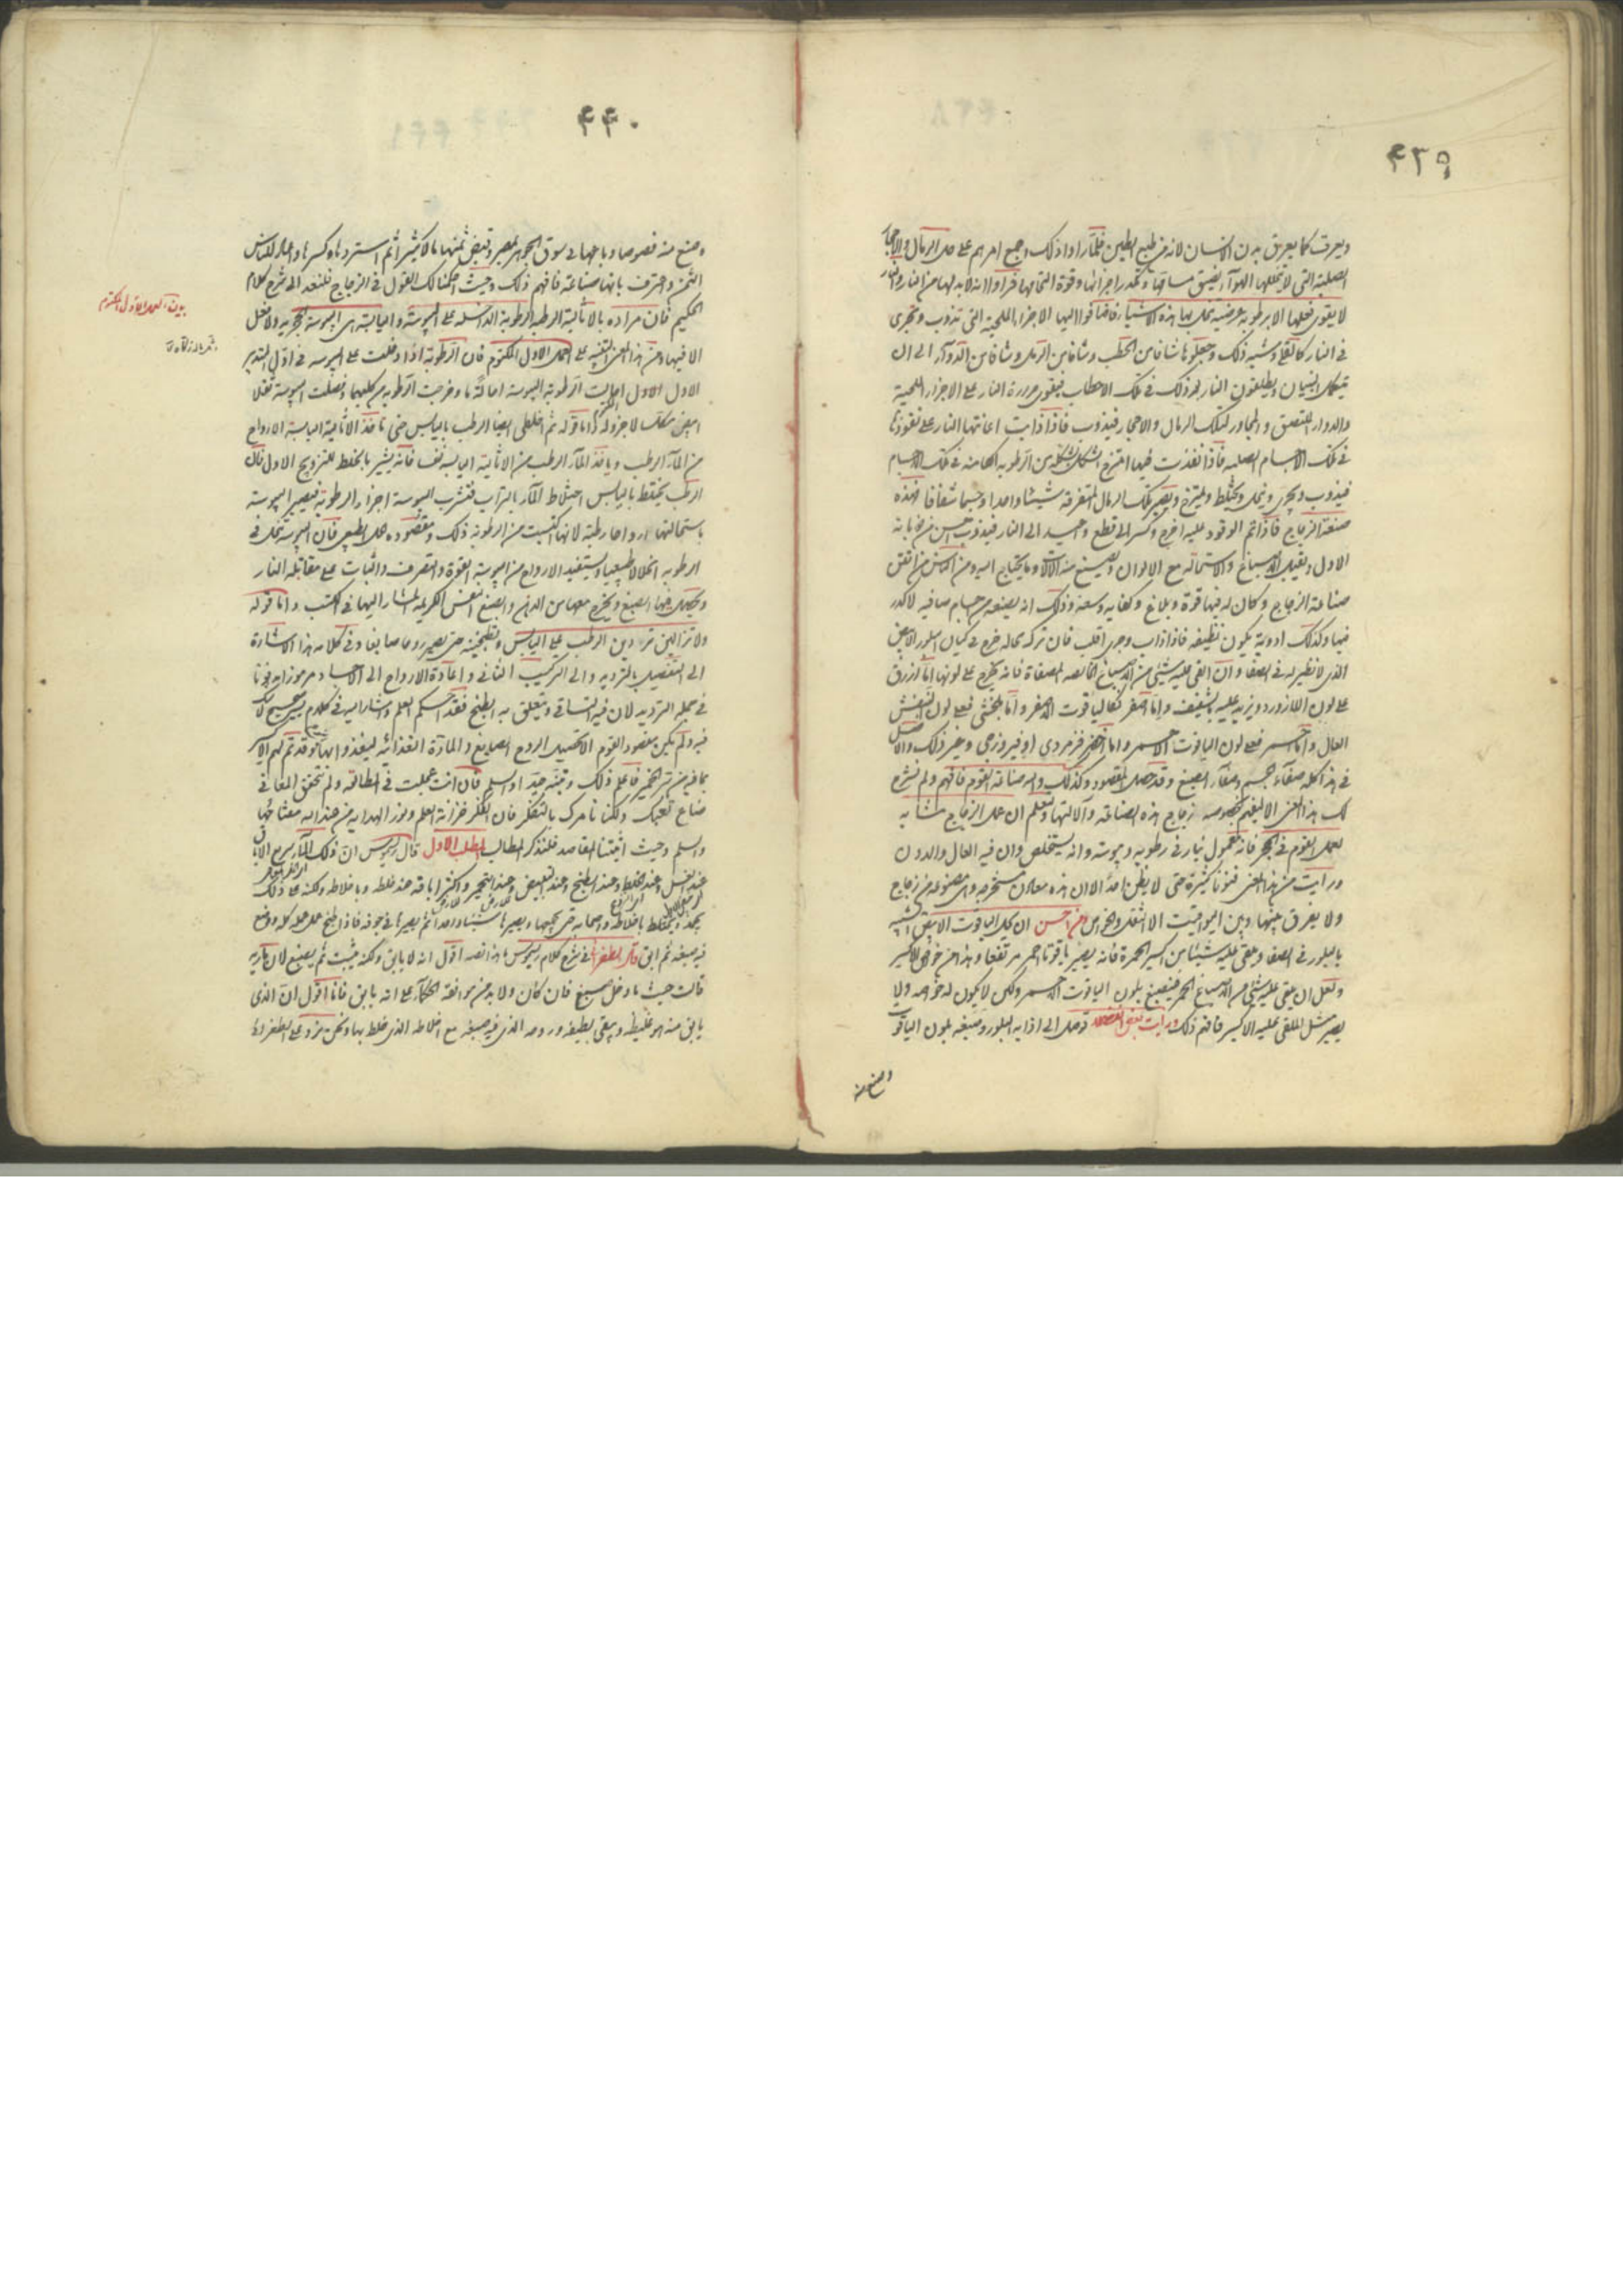 ۴۳۹
ويعرق كما يعرق بدن الانسان لانه من طبع الطين فلما راوا ذلك اجمع امرهم على حل الرمال والاحجار
الصلبة التى لا يتخللها الهوآء لضيق مسامها وتكدر اجزائها وقوة التحامها فراوا انه لابد لها من النار والنار
لا يقوى فعلها الا برطوبة عرضية تحل بها هذه الاشياء فاضافوا اليها الاجزاء الملحية التى تذوب وتجرى
فى النار كالقلى وشبه ذلك وجعلوها شافا من الحطب وشافا من الرمل وشافا من الدوآء الى ان
يتكمل البنيان ويطلقون النار بعد ذلك فى تلك الاحطاب فيقوى حرارة النار على الاجزاء الملحية
والدواء الملتصق والمجاور لتلك الرمال والاحجار فيذوب فاذا ذابت اعانتها النار على نفوذها
فى تلك الاجسام الصلبة فاذا نفذت فيها امتزج الشكل بشكله من الرطوبة الكامنة فى تلك الاجسام
فيذوب ويجرى وينحل ويختلط ويمتزج ويصير تلك الرمال المتفرقة شيئا واحدا وجسما شفافا فهذه
صنعة الزجاج فاذا تم الوقود عليه اخرج وكسر الى قطع واعيد الى النار فيذوب احسن من ذوبانه
الاول ويقبل الاصباغ والاستحالة مع الالوان ويصنع منه الآلات وما يحتاج اليه ومن الناس من اتقن
صناعة الزجاج وكان له فيها قوة وبلاغ وكفاية وسعة وذلك انه يصنعه من اجسام صافية لا كدر
فيها وكذلك ادويته يكون نظيفة فاذا ذاب وجرى اقلب فان تركه بحاله خرج فى كيان البلور الابيض
الذى لا نظير له فى الصفا وان القى عليه شيئى من الاصباغ الخالصة المصفاة فانه يخرج على لونها اما ازرق
على لون اللازورد ويزيد عليه بالشفيف واما اصفر كالياقوت الاصفر واما بنفشى فعلى لون البنفش
العال واما احمر فعلى لون الياقوت الاحمر واما اخضر فزمردى او فيروزجى وغير ذلك والاصل
فى هذا كله صفآء الجسم وصفآء الصبغ وقد حصل المقصود وكذلك واليه صناعة القوم فافهم ولم نشرح
لك هذا المعنى الا ليفهم بخصوصه زجاج هذه الصناعة وآلالتها ولتعلم ان عمل الزجاج مشابه
لعمل القوم فى الحجر فانه معمول بنار فى رطوبة ويبوسة وانه يستخلص وان فيه العال والدون
ورايت من هذا المعنى فنونا كثيرة حتى لا يظن احد الا ان هذه معادن مستخرجة وهى مصنوعة من زجاج
ولا يفرق بينها وبين اليواقيت الا الثقل والخواص ومن احسن ان كان الياقوت الابيض اشبه
بالبلور فى الصفا ويلقى عليه شيئا من اكسير الحمرة فانه يصير ياقوتا احمر مرتفعا وهذا من خواص الاكسير
ولعل ان يلقى عليه شيئى من الاصباغ الحمر فينصبغ بلون الياقوت الاحمر ولكن لا يكون له خواصه ولا
يصير مثل الملقى عليه الاكسير فافهم ذلك ورايت بعض الفضلا توصل الى اذابة البلور وصبغه بلون الياقوت
وصنع منه
۴۴۰
وصنع منه فصوصا وباعها فى سوق الجوهر بمصر وقبض ثمنها مالا كثيرا ثم استردها وكسرها واعاد للناس
الثمن واعترف بانها صناعة فافهم ذلك وحيث احكمنا لك القول فى الزجاج فلنعد الى شرح كلام
الحكيم فان مراده بالاثالية الرطبة الرطوبة الداخلة على اليبوسة واليابسة هى اليبوسة الحجرية ولا فعل
الا فيها ومن هذا المعنى التنبيه على العمل الاول المكتوم فان الرطوبة اذا دخلت على اليبوسة فى اول التدبير
الاول الاول احالت الرطوبة اليبوسة احالة ما وخرجت الرطوبة من كليهما وفضلت اليبوسة ثفلا
ابيض متكلسا لا جزو له واما قوله ثم اخلطى ايضا الرطب باليابس حتى تاخذ الاثالية اليابسة الارواح
من المآء الرطب وياخذ المآء الرطب من الاثالية اليابسة نفسا فانه يشير بالخلط للتزويج الاول فان
الرطب يختلط باليابس اختلاط المآء بالتراب فتشرب اليبوسة اجزاء الرطوبة فيصير اليبوسة
باستحالتها ارواحا رطبة لانها اكتسبت من الرطوبة ذلك ومقصوده الحل الطبيعى فان اليبوسة تنحل فى
الرطوبة انحلالا طبيعيا وتستفيد الارواح من اليبوسة القوة والتصرف والثبات على مقابلة النار
ويحصل فيها الصبغ ويخرج معها من الدهن والصبغ النفس الكريمة المشار اليها فى الكتب واما قوله
ولا تزالين تردين الرطب على اليابس وتطبخينه حتى يصير روحا صابغا وفى كلامه هذا الاشارة
الى التفصيل بالترديد والى التركيب الثانى واعادة الارواح الى الاجساد مرموزا مدفونا
فى جملة الترديد لان فيه التساقى ويتعلق به الطبخ فقد احكم العلم واشار اليه فى كلام بين صحيح لا شك
فيه ولم يكن مقصود القوم الا تحصيل الروح الصابغ والمادة الغذائية ليغذوا بها وقد تم لهم الاكسير
بما فيه من سر الخمير فاعلم ذلك وتبينه جيدا واسلم فان انت عجلت فى المطالعة ولم تتحقق المعانى
ضاع تعبك ولكنا نامرك بالتفكر فان الفكر خزانة العلم ونور الهداية من عند الله مفتاحها
والسلم وحيث اثبتنا المقاصد فلنذكر المطالب المطلب الاول قال ريموس ان ذلك المآء سريع الاباق
عند الغسل وعند الخلط وعند الطبخ وعند التبييض وعند التحمير واكثر اباقه عند خلطه وباخلاطه ولكنه مع ذلك
يجمد ويختلط باخلاطه واصحابه حتى يجمعها ويصيرها شيئا واحدا ثم يصيرها فى جوفه فاذا طبخ عمل عمله كله ووقع
فيه صبغه ثم ابق قال الطغرائى فى شرح كلام ريموس ما هذا نصه اقول انه لا يابق ولكنه يثبت ثم يصبغ لان مارية
قالت حيث ما دخل صبغ فان كان ولا بد من موافقة الحكمآء على انه يابق فانا اقول ان الذى
يابق منه هو غليظه ويبقى لطيفه وروحه الذى فيه صبغه مع اخلاطه الذى خلط بها ونحن نرد على الطغرائى
بيان العمل الاول المكتوم